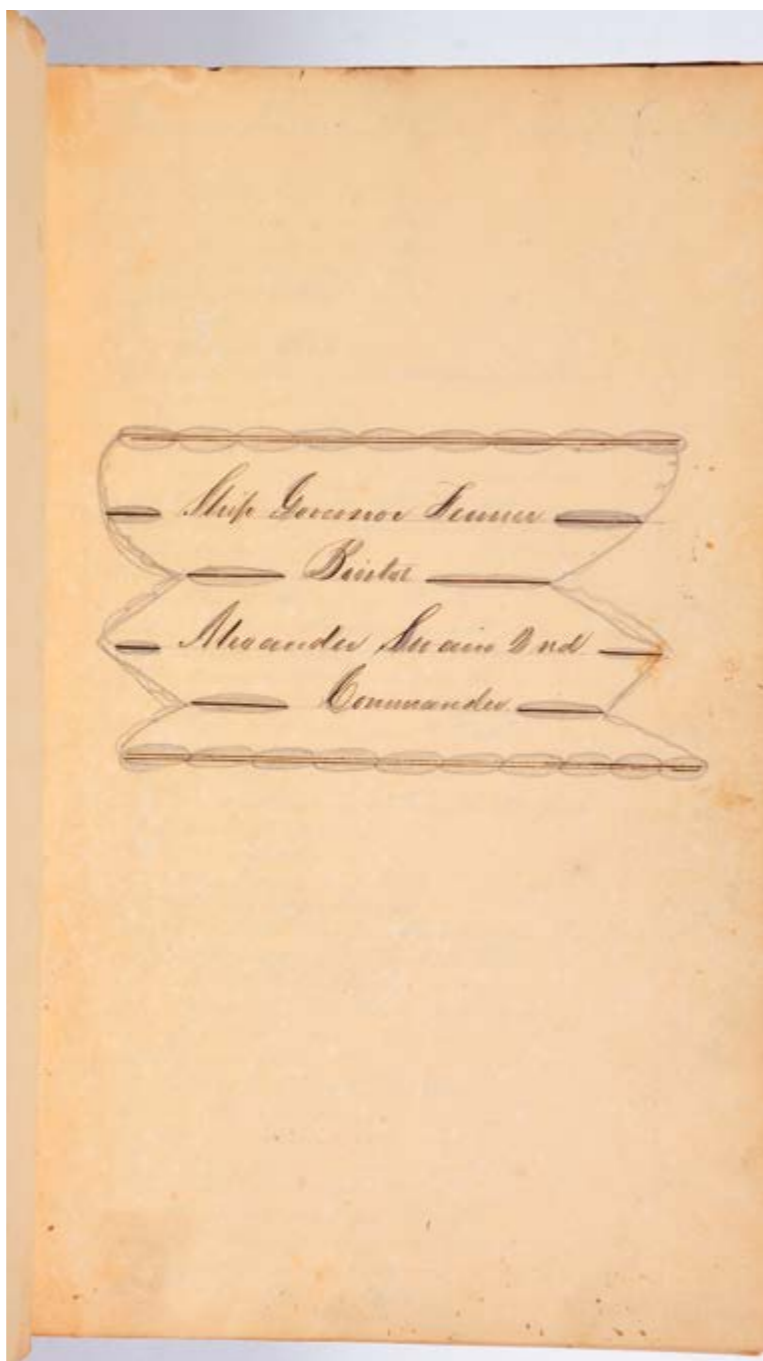 Ship Governor Fenner
Bristol
Alexander Swain 2nd
Commander